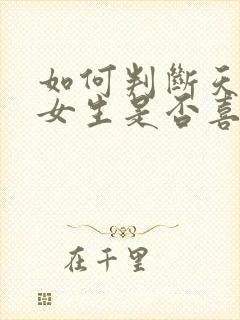 如何判斷天
女生是否喜
在千里